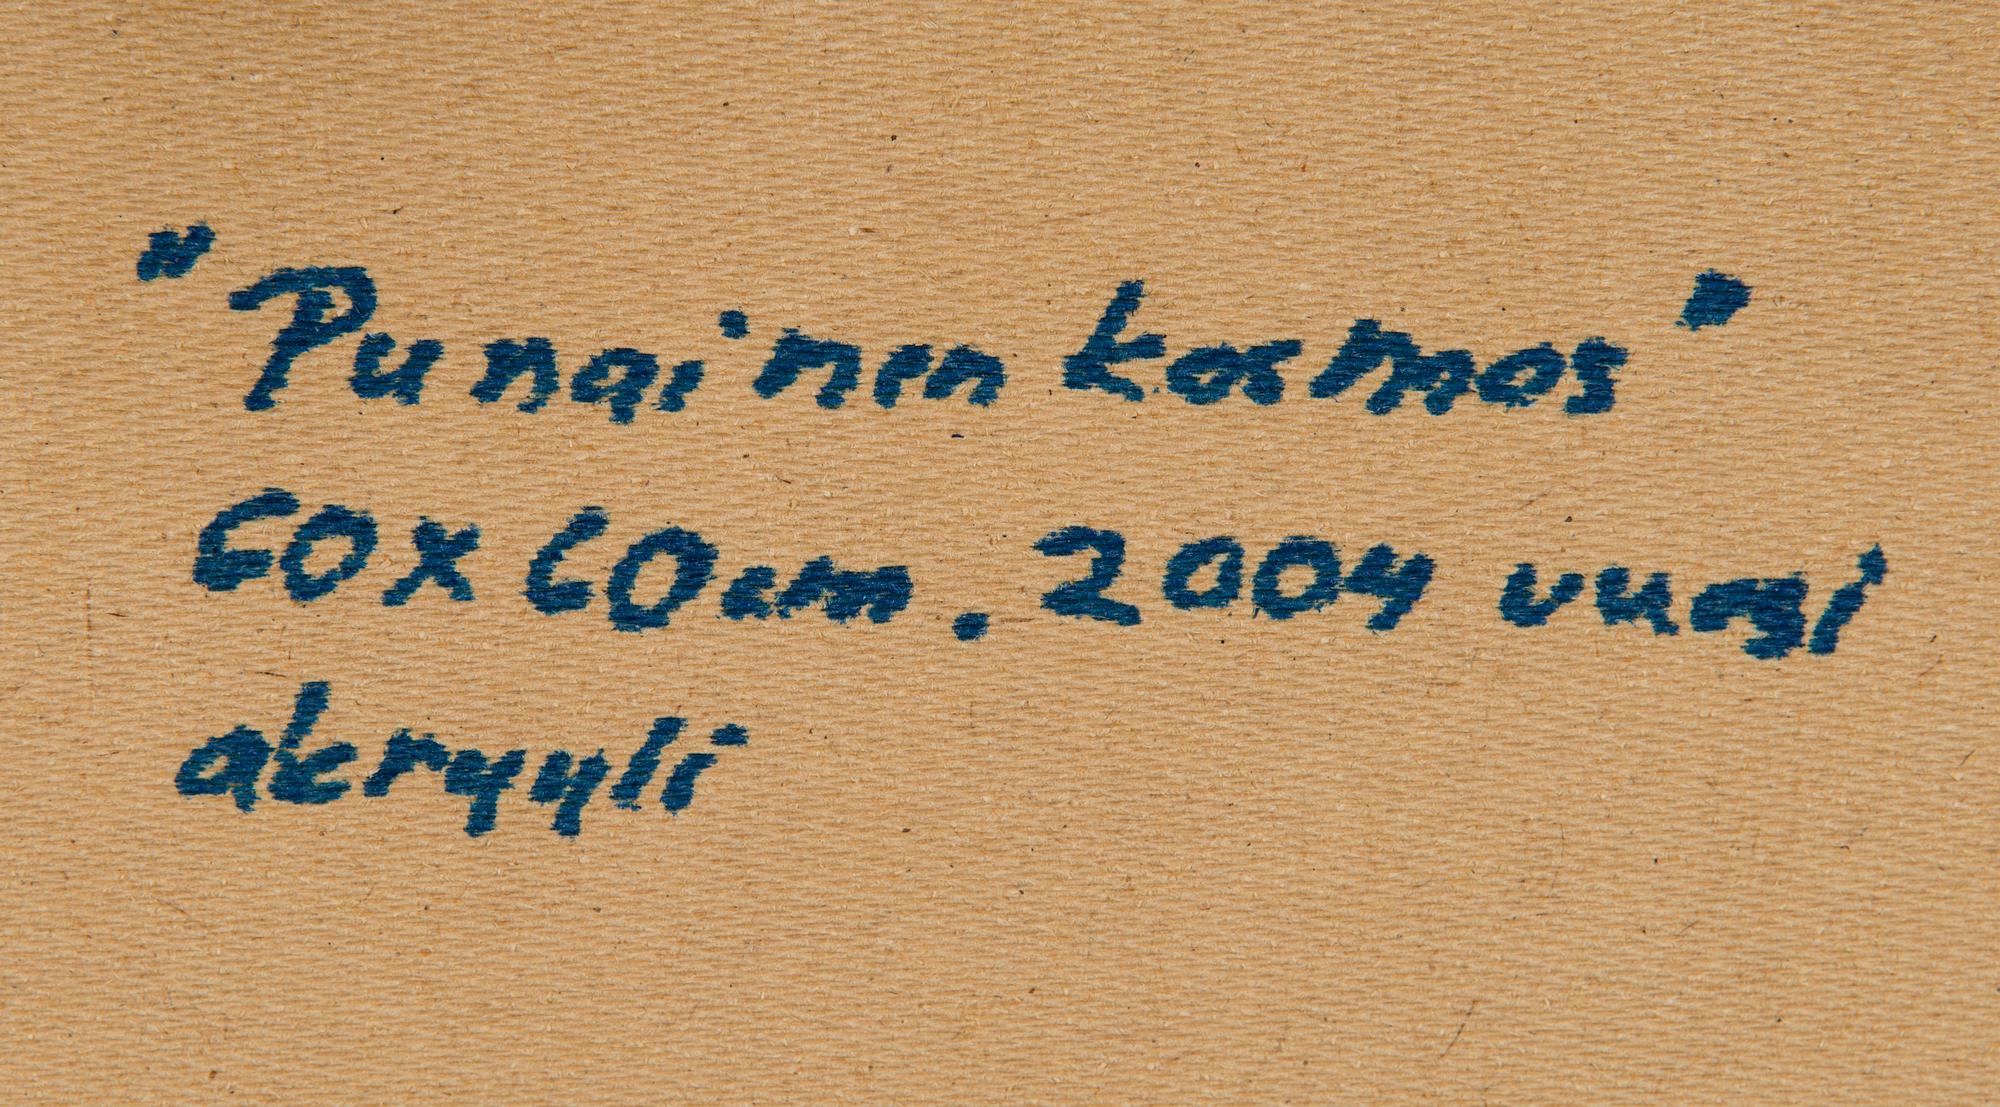 "Punainen kosmos"
60x60cm. 2004 vuosi
akryyli